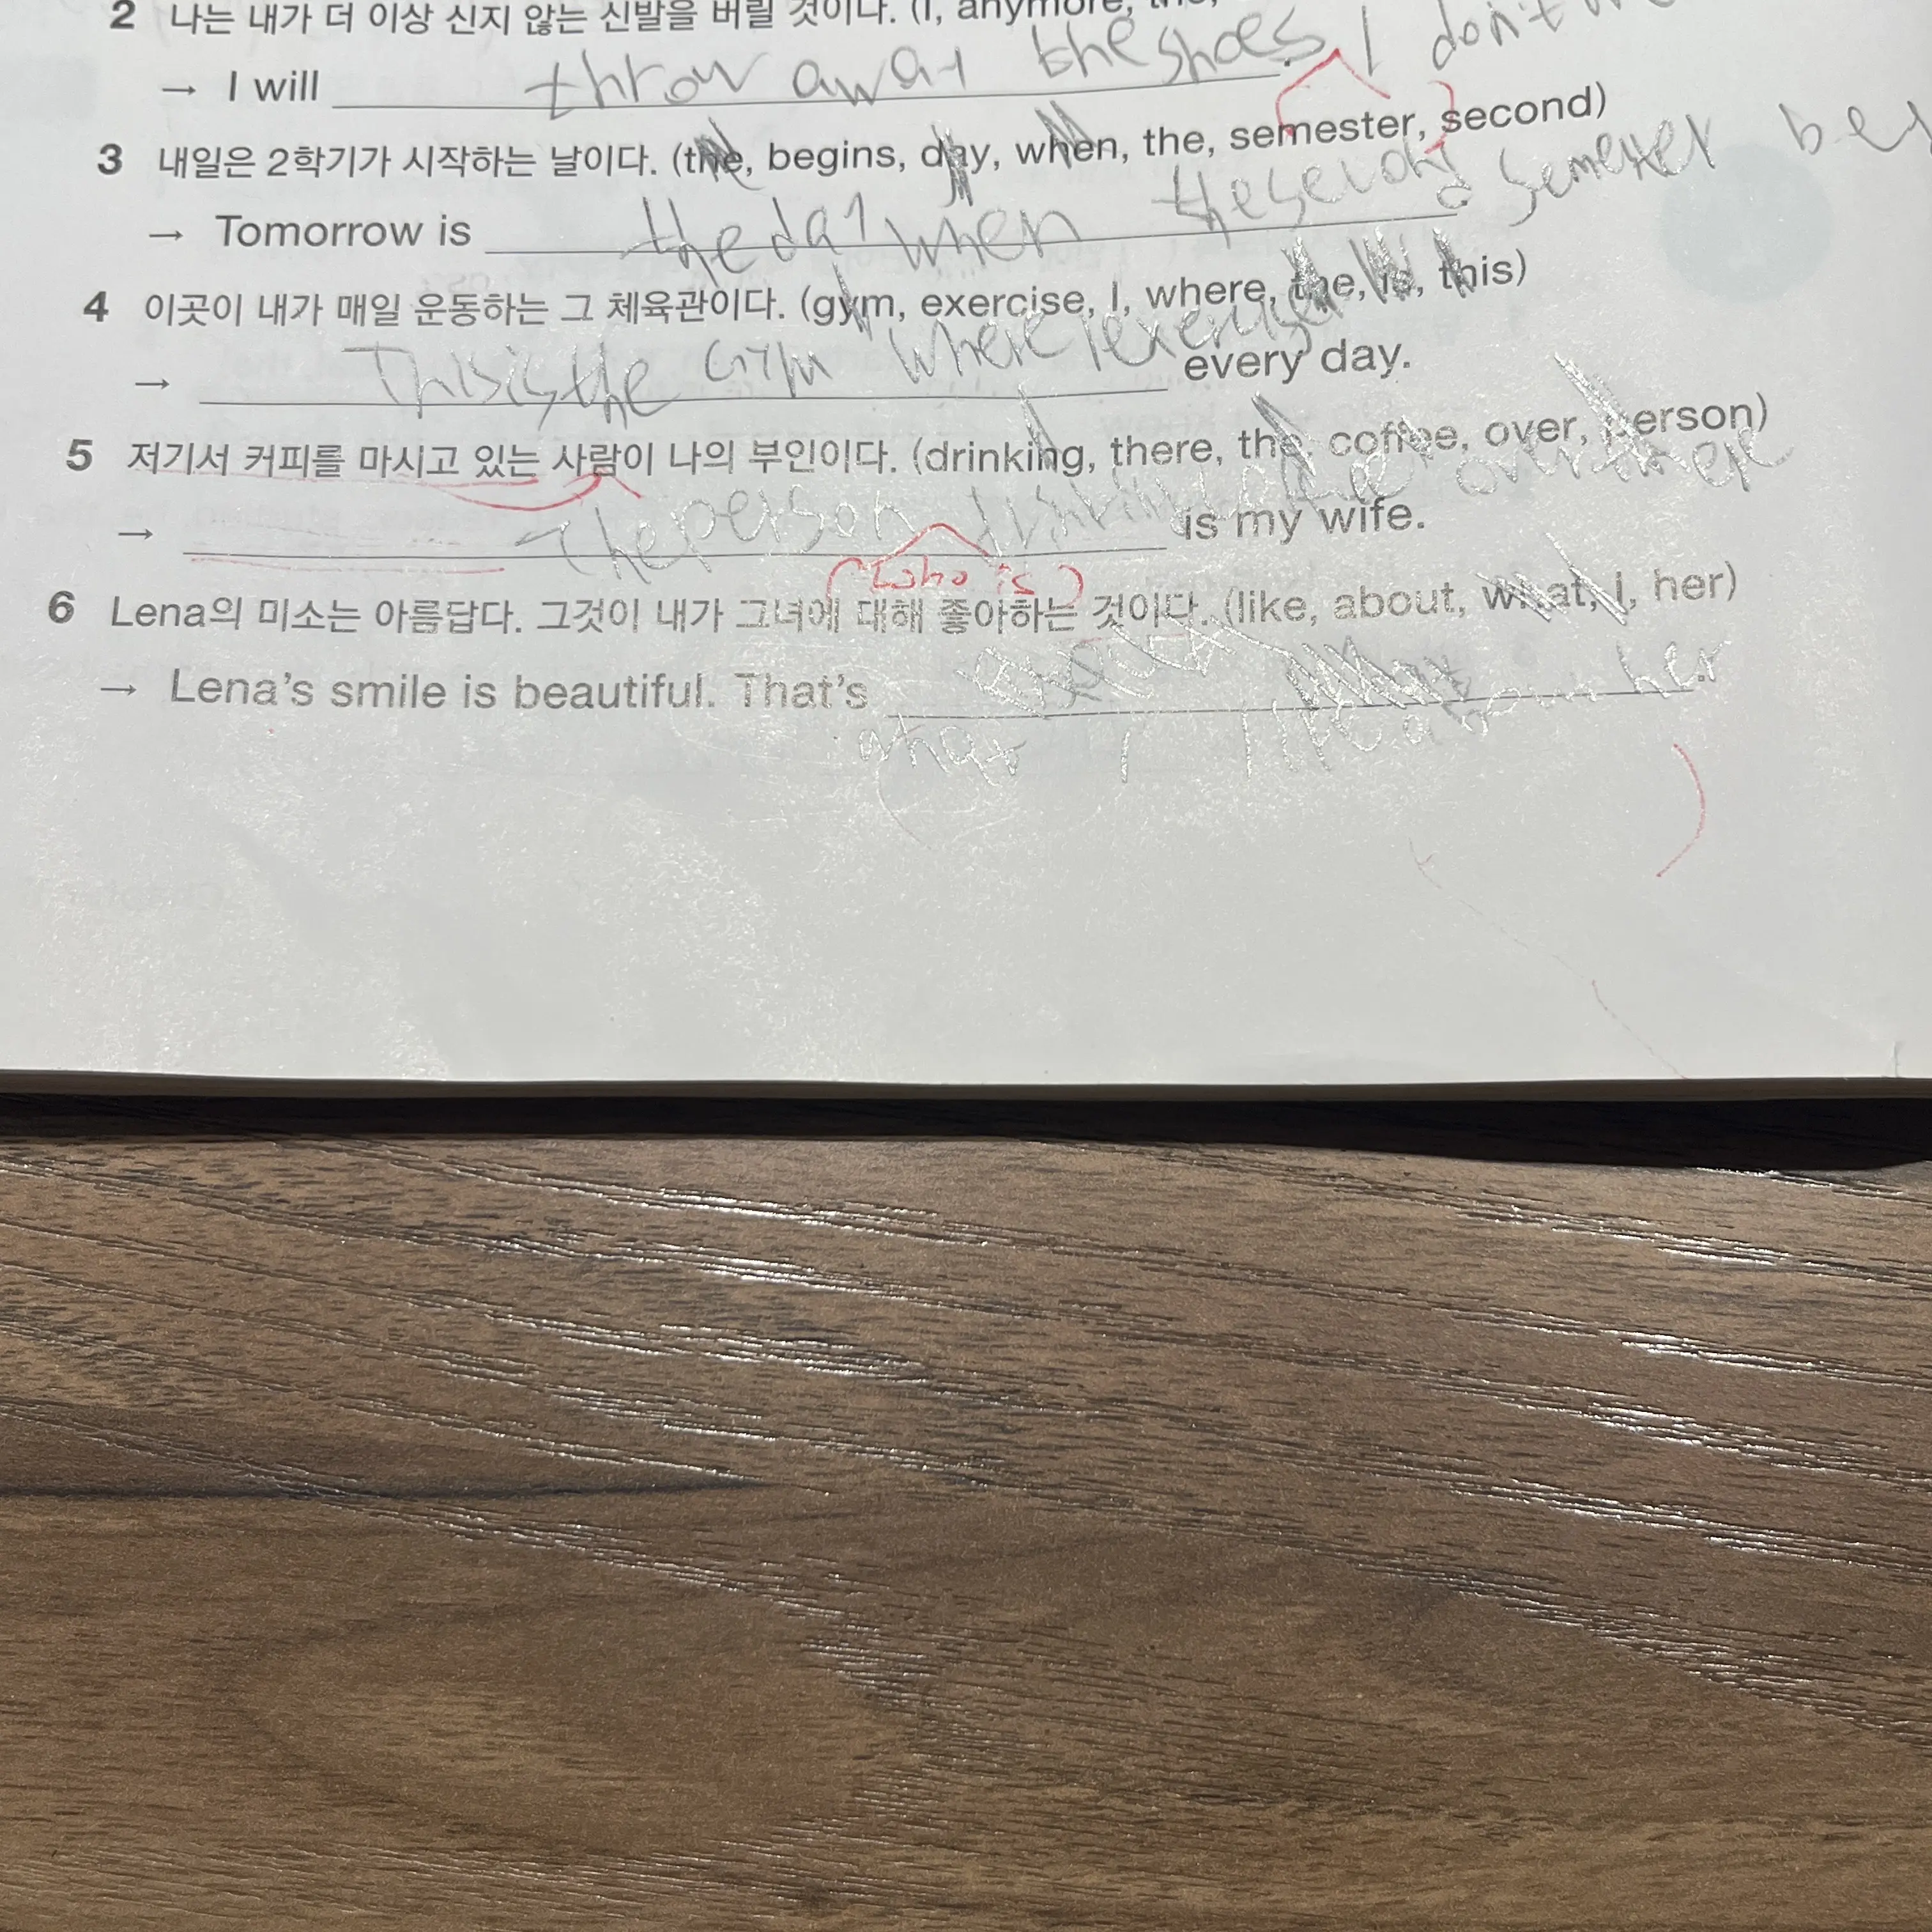 2 나는 내가 더 이상 신지 않는 신발을 버릴 것이다. (I, anymore,
→ I will throw away the shoes I don't
3 내일은 2학기가 시작하는 날이다. (the, begins, day, when, the, semester, second)
→ Tomorrow is the day when the second semester
4 이곳이 내가 매일 운동하는 그 체육관이다. (gym, exercise, I, where, the, is, this)
→ This is the gym where I exercise every day.
5 저기서 커피를 마시고 있는 사람이 나의 부인이다. (drinking, there, the, coffee, over, person)
→ The person drinking over there is my wife.
(who is)
6 Lena의 미소는 아름답다. 그것이 내가 그녀에 대해 좋아하는 것이다. (like, about, what, I, her)
→ Lena's smile is beautiful. That's
what I like about her